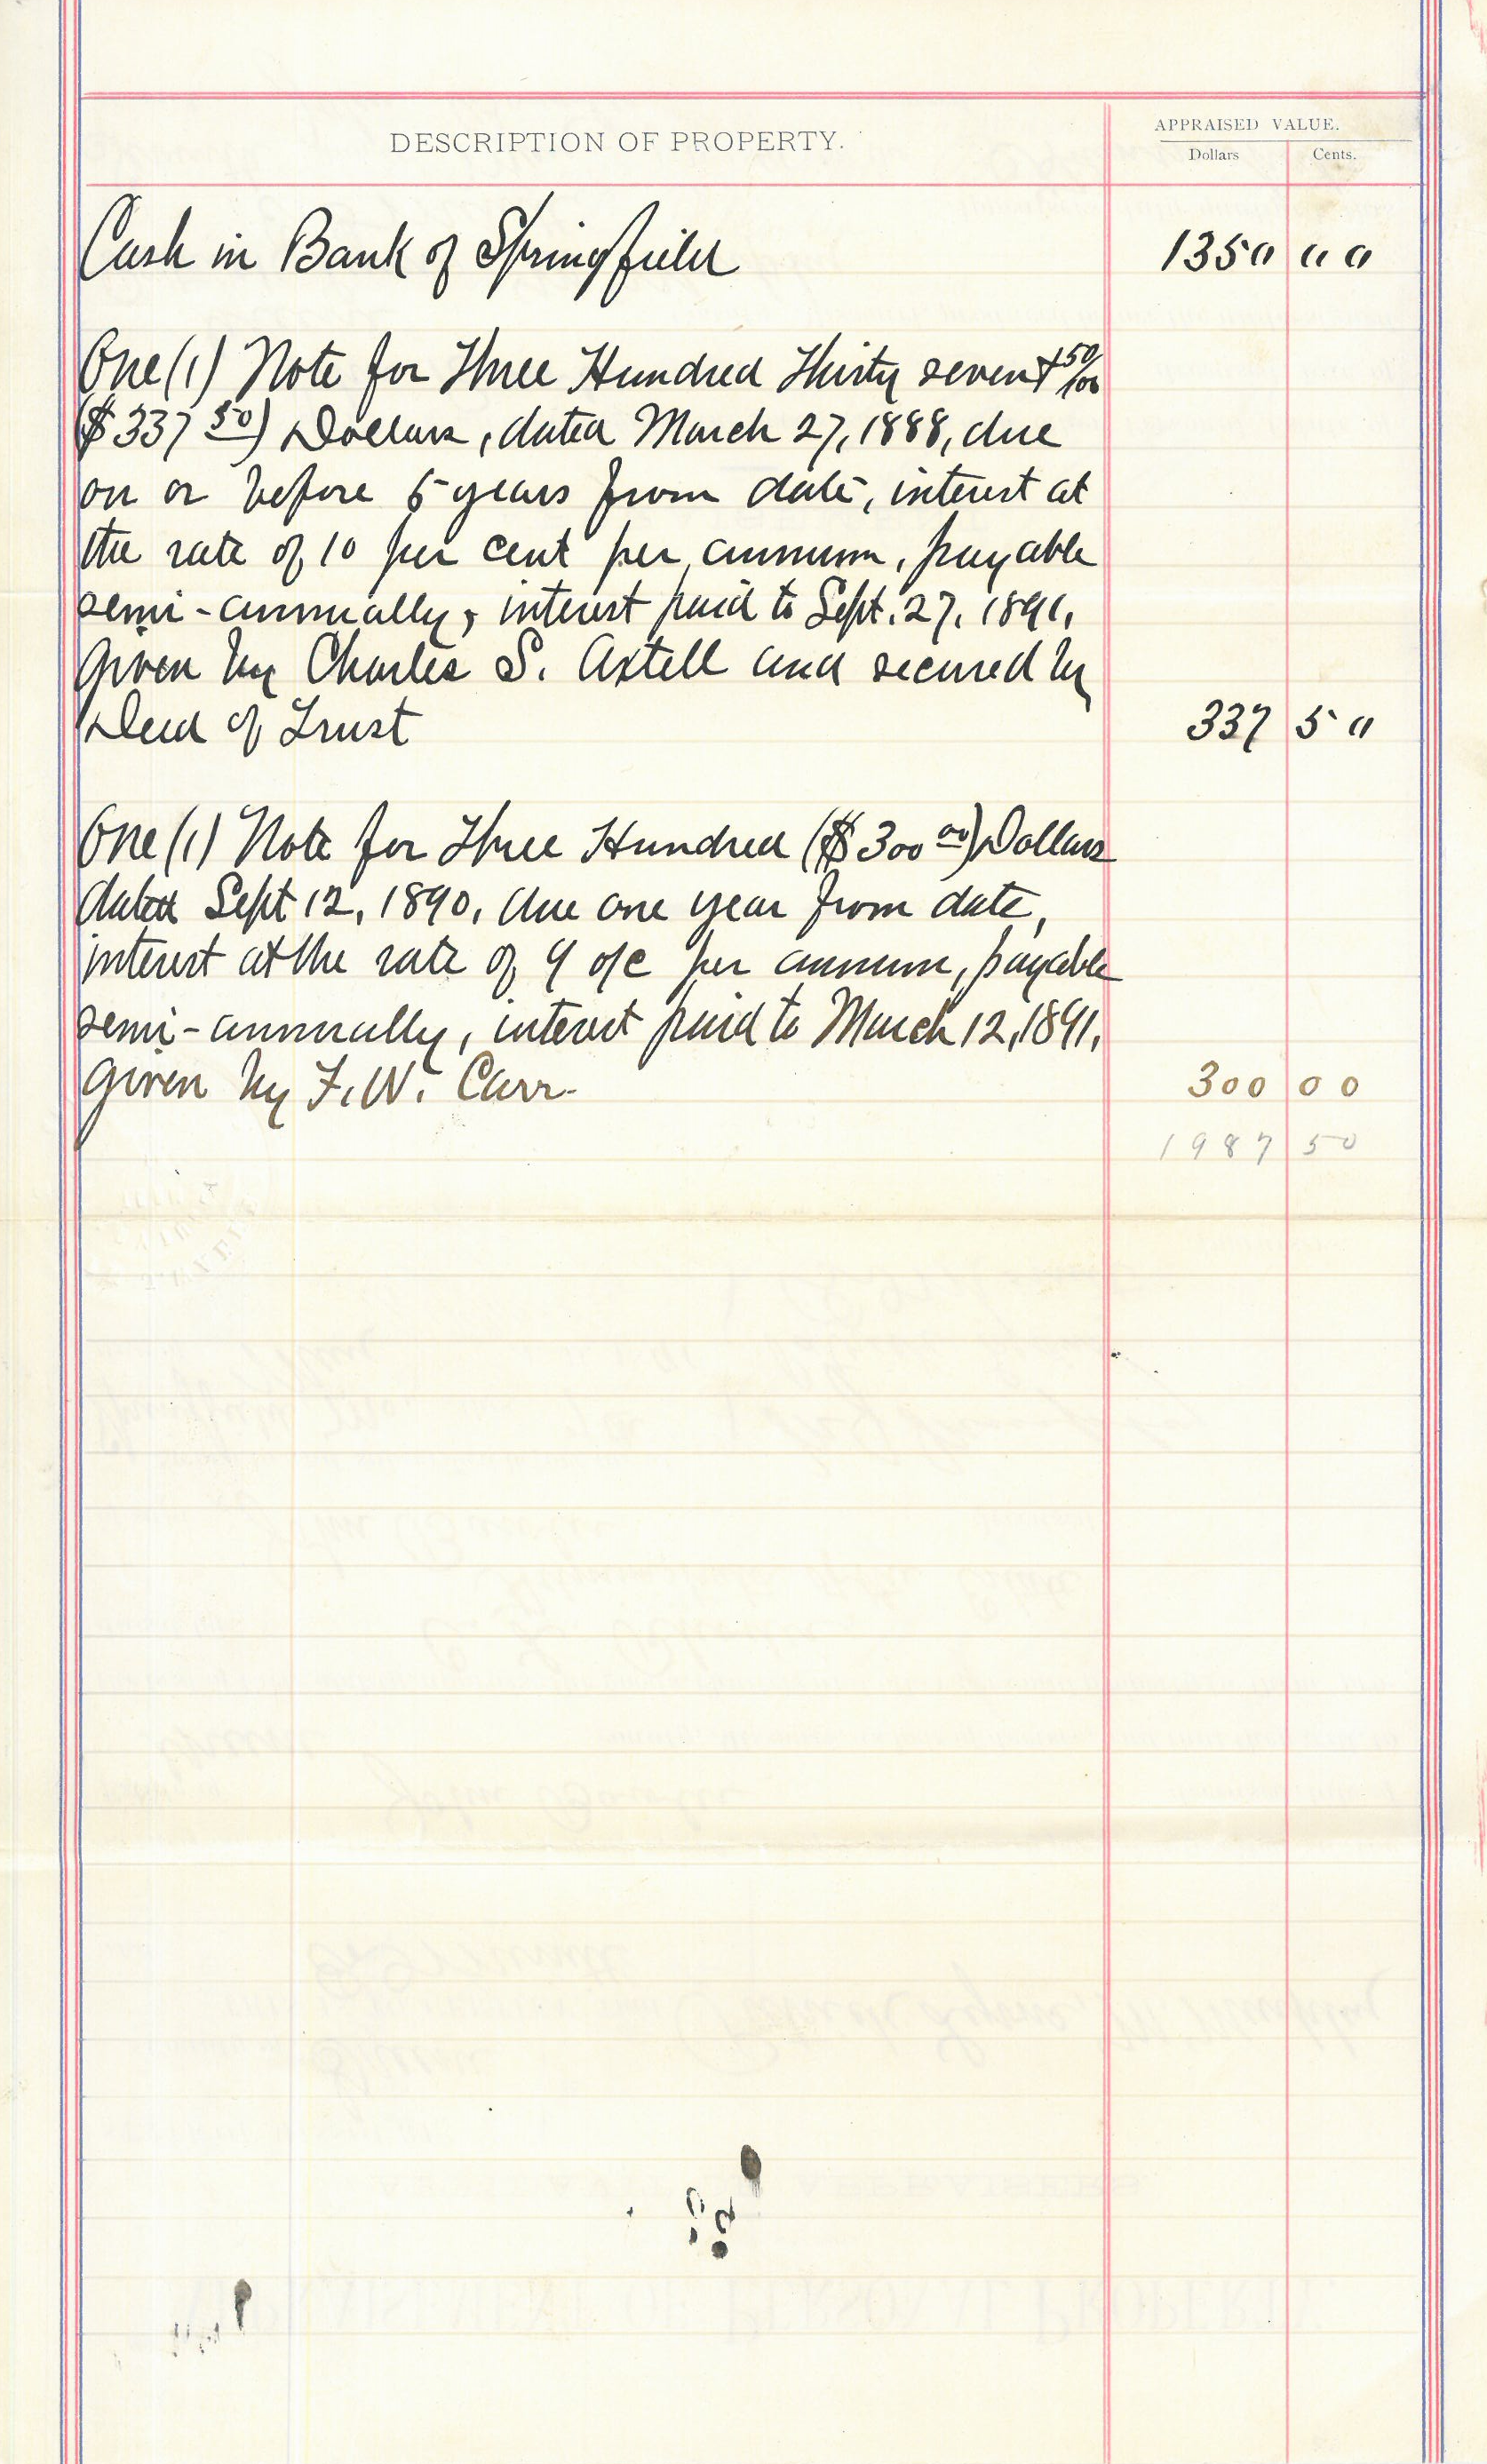 DESCRIPTION OF PROPERTY. APPRAISED VALUE.
Dollars Cents.
Cash in Bank of Springfield 1350 00
One (1) Note for Three Hundred Thirty seven + 50/100
($337 50) Dollars, dated March 27, 1888, due
on or before 5 years from date, interest at
the rate of 10 per cent per annum, payable
semi-annually, interest paid to Sept. 27, 1891,
Given by Charles S. Axtell and secured by
Deed of Trust 337 50
One (1) Note for Three Hundred ($300 00) Dollars
dated Sept 12, 1890, due one year from date,
interest at the rate of 9 o/c per annum, payable
semi-annually, interest paid to March 12, 1891,
Given by F. W. Carr. 300 00
1987 50